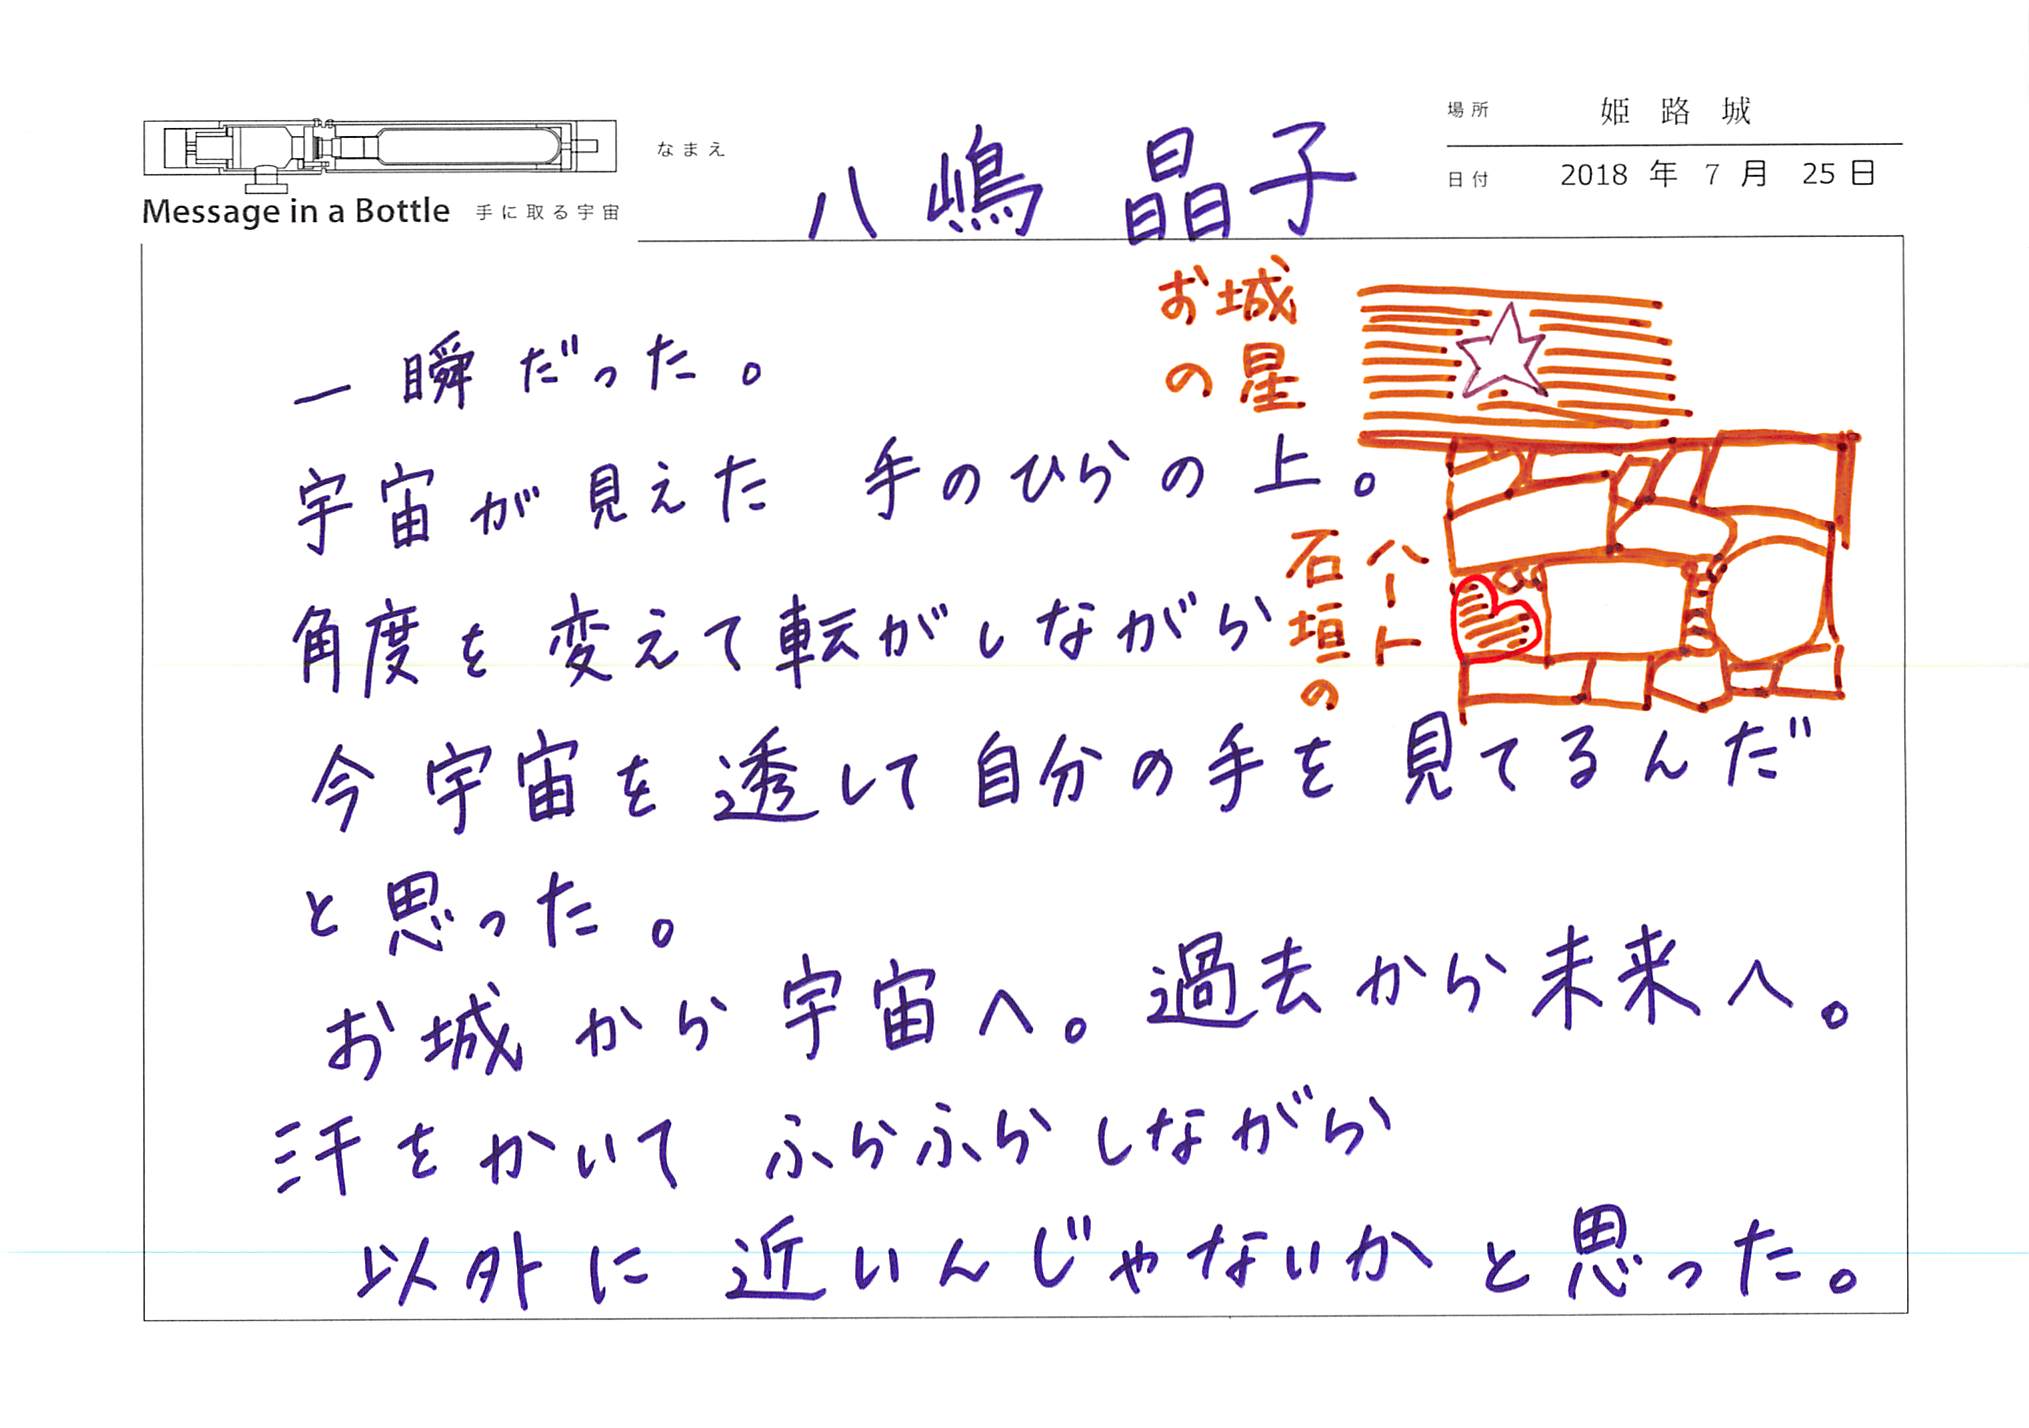 場所 姫路城
なまえ 八嶋 晶子
日付 2018 年 7 月 25 日
Message in a Bottle 手に取る宇宙
お城
の星
一瞬だった。
宇宙が見えた 手のひらの上。
石垣の
ハート
角度を変えて転がしながら
今宇宙を透して自分の手を見てるんだ
と思った。
お城から宇宙へ。過去から未来へ。
汗をかいて ふらふらしながら
以外に近いんじゃないかと思った。